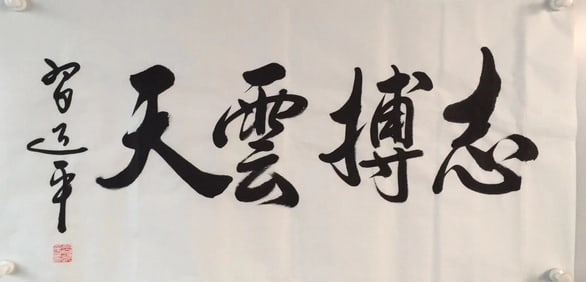 志搏雲天
習近平